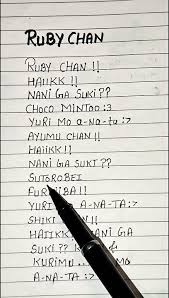 RUBY CHAN
RUBY CHAN !!
HAIIKK !!
NANI GA SUKI ??
CHOCO MINTOO :3
YURI MO A-NA-ta :>
AYUMU CHAN !!
HAIIKK !!
NANI GA SUKI ??
SUTOROBEI
YURI A-NA-TA :>
SHIKI !!
HAIIKK NANI GA
SUKI ??
KURIMU MO
A-NA-TA :>